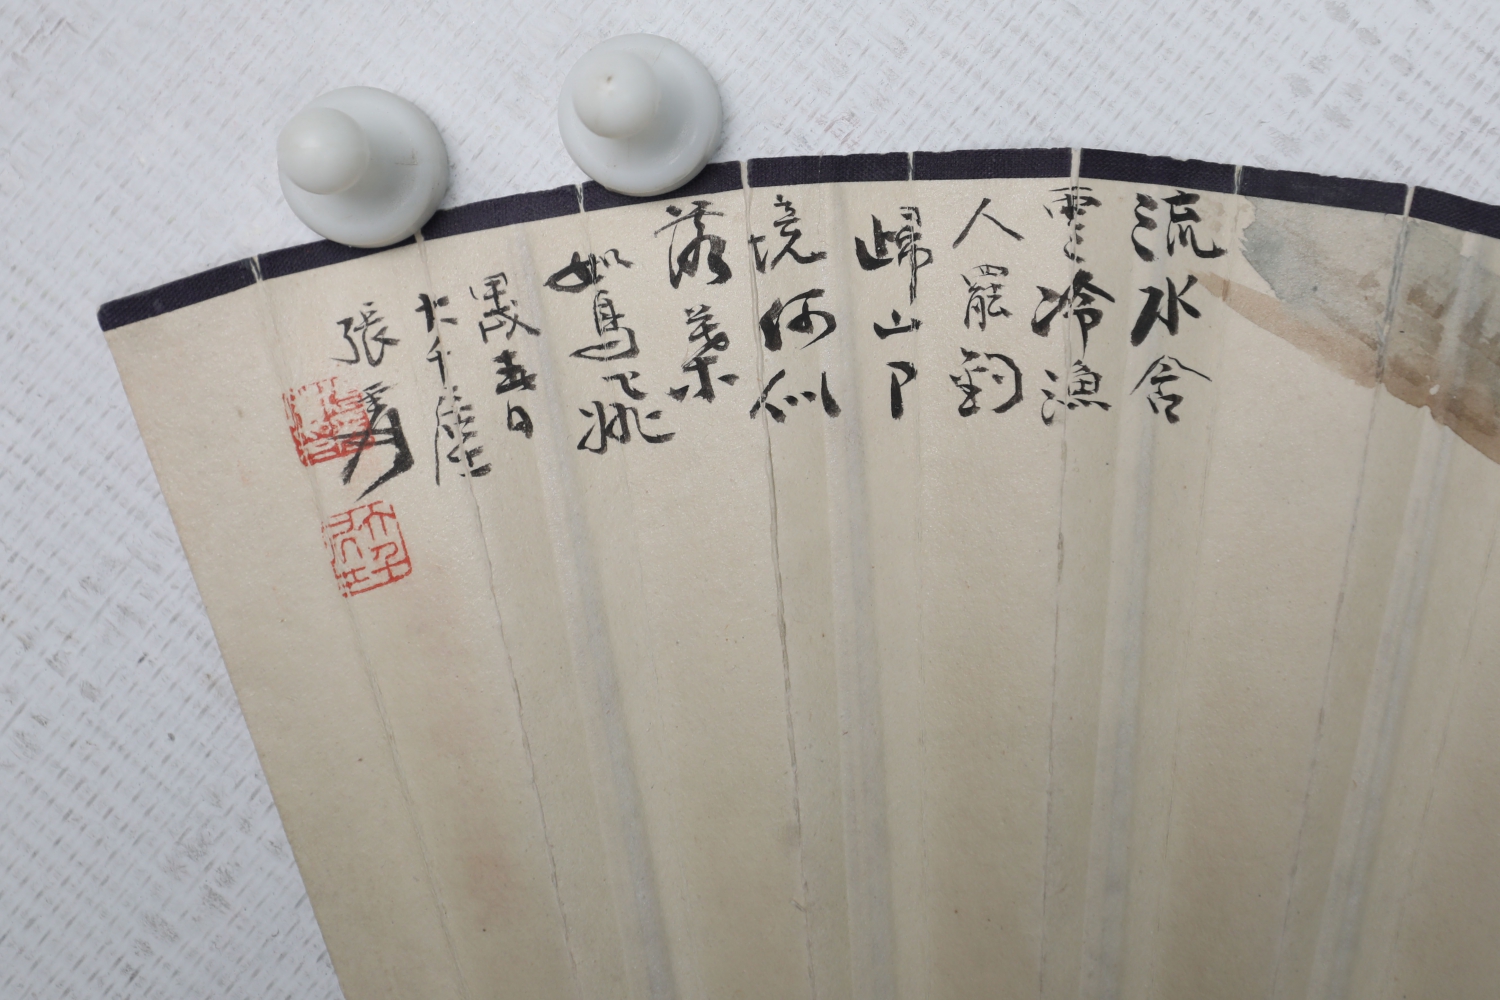 流水含
雲冷漁
人罷釣
歸山中
境何似
落葉
如鳥飛
甲戌春日
大千居士
張爰